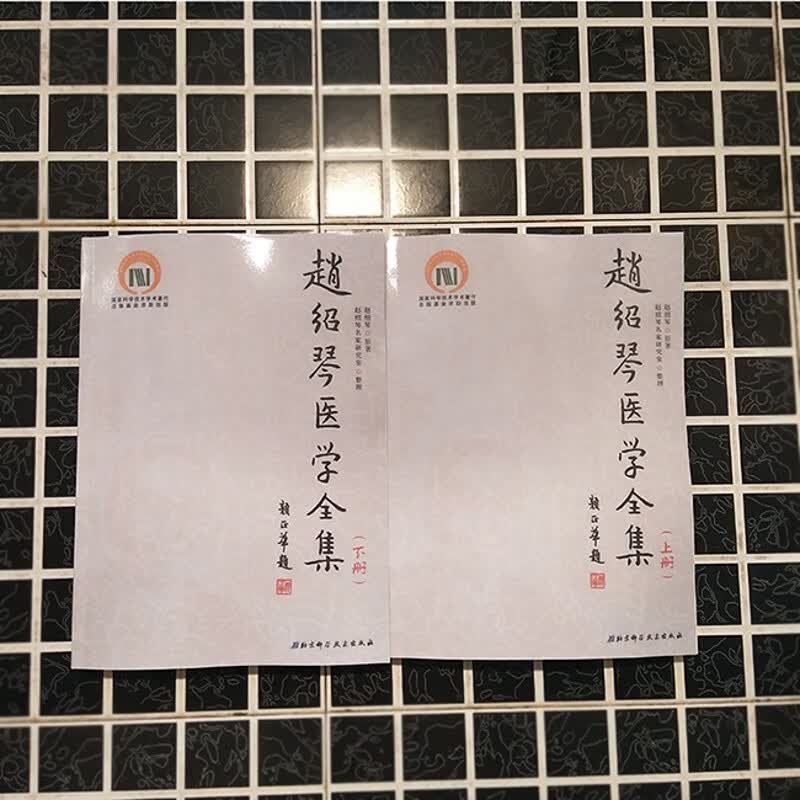 国家科学技术学术著作
出版基金资助出版
趙绍琴医学全集
(下册)
赵绍琴◎原著
赵绍琴名家研究室◎整理
颖正华题
北京科学技术出版社
国家科学技术学术著作
出版基金资助出版
趙绍琴医学全集
(上册)
赵绍琴◎原著
赵绍琴名家研究室◎整理
颖正华题
北京科学技术出版社